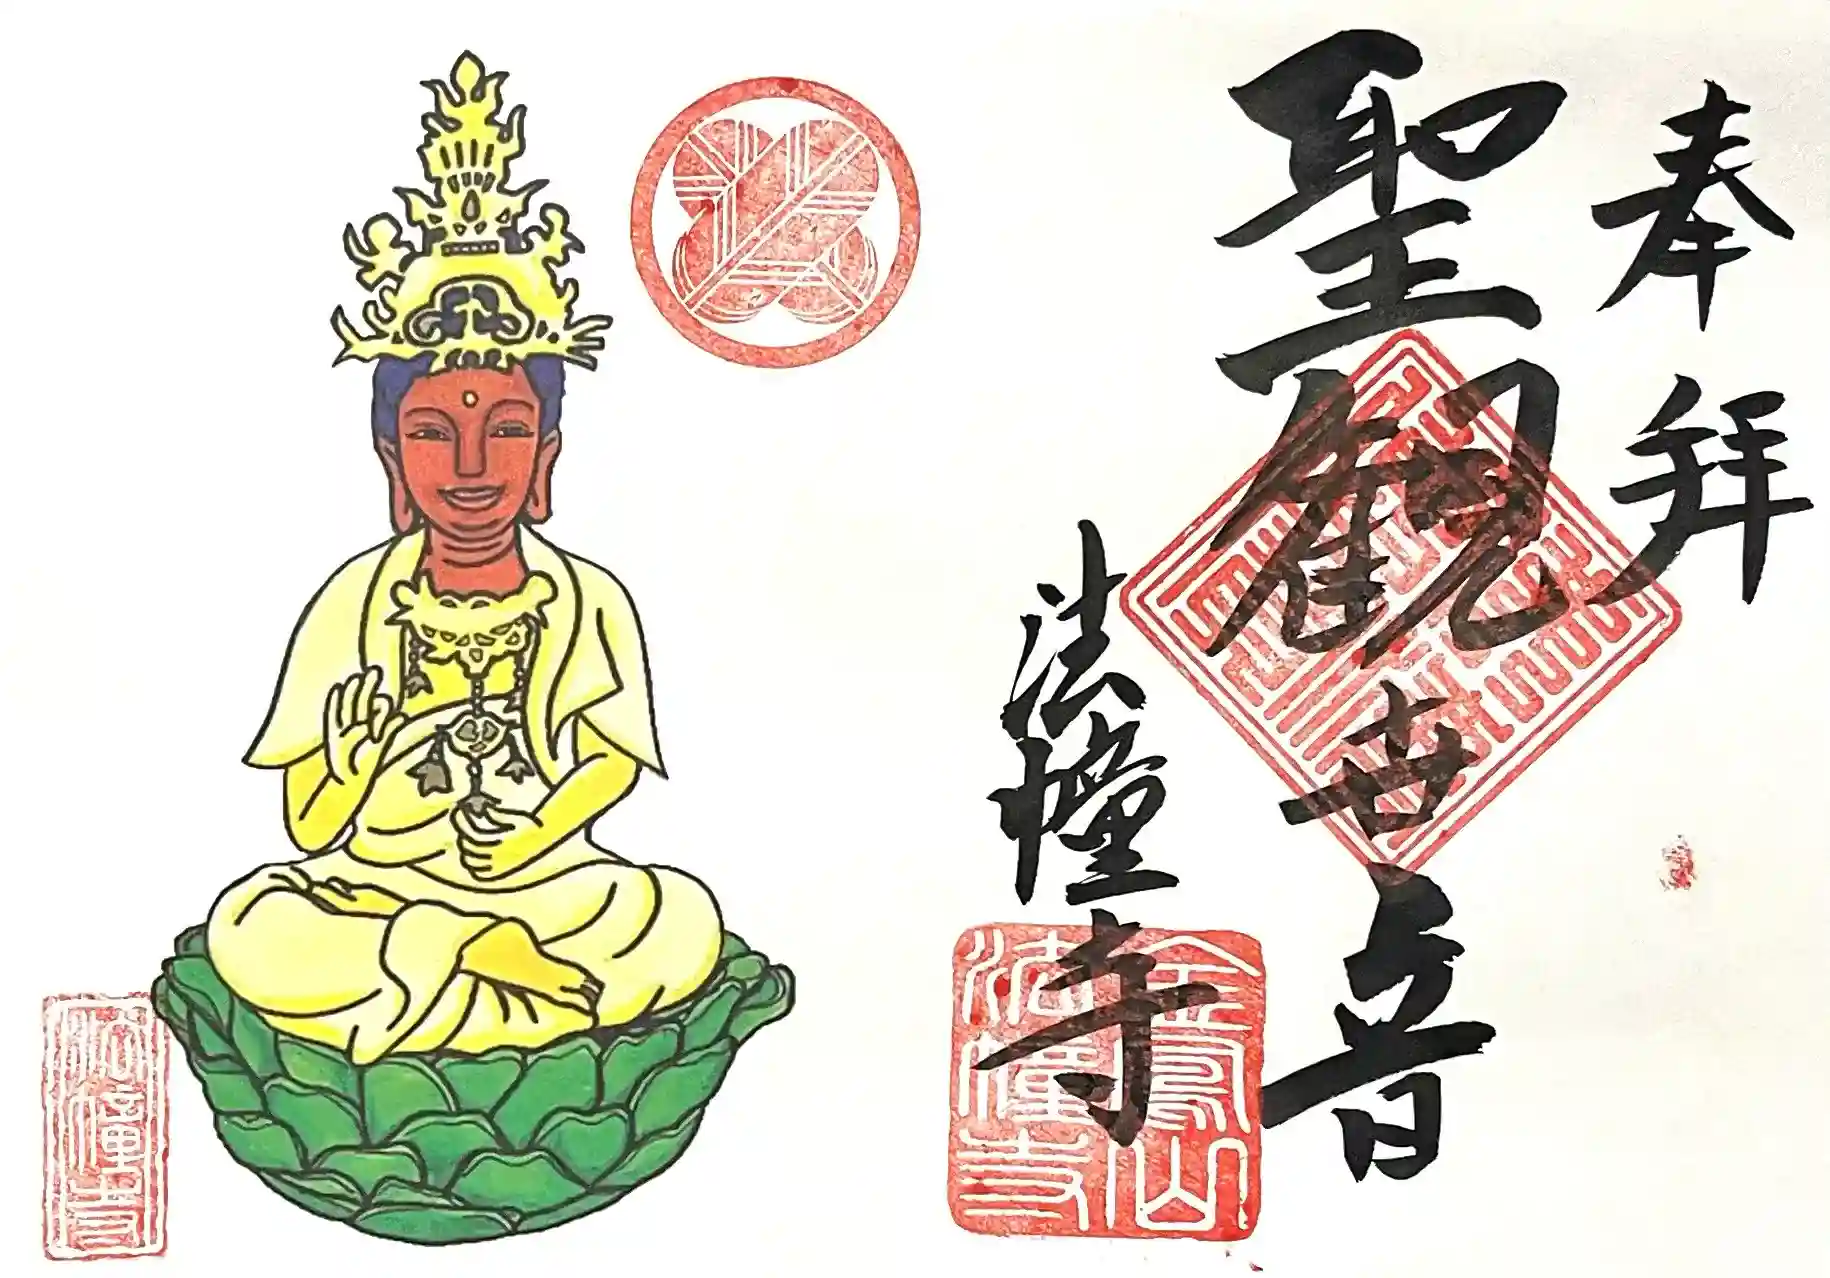 奉拜
聖観世音
法幢寺
金鳳山
法幢寺
法幢寺